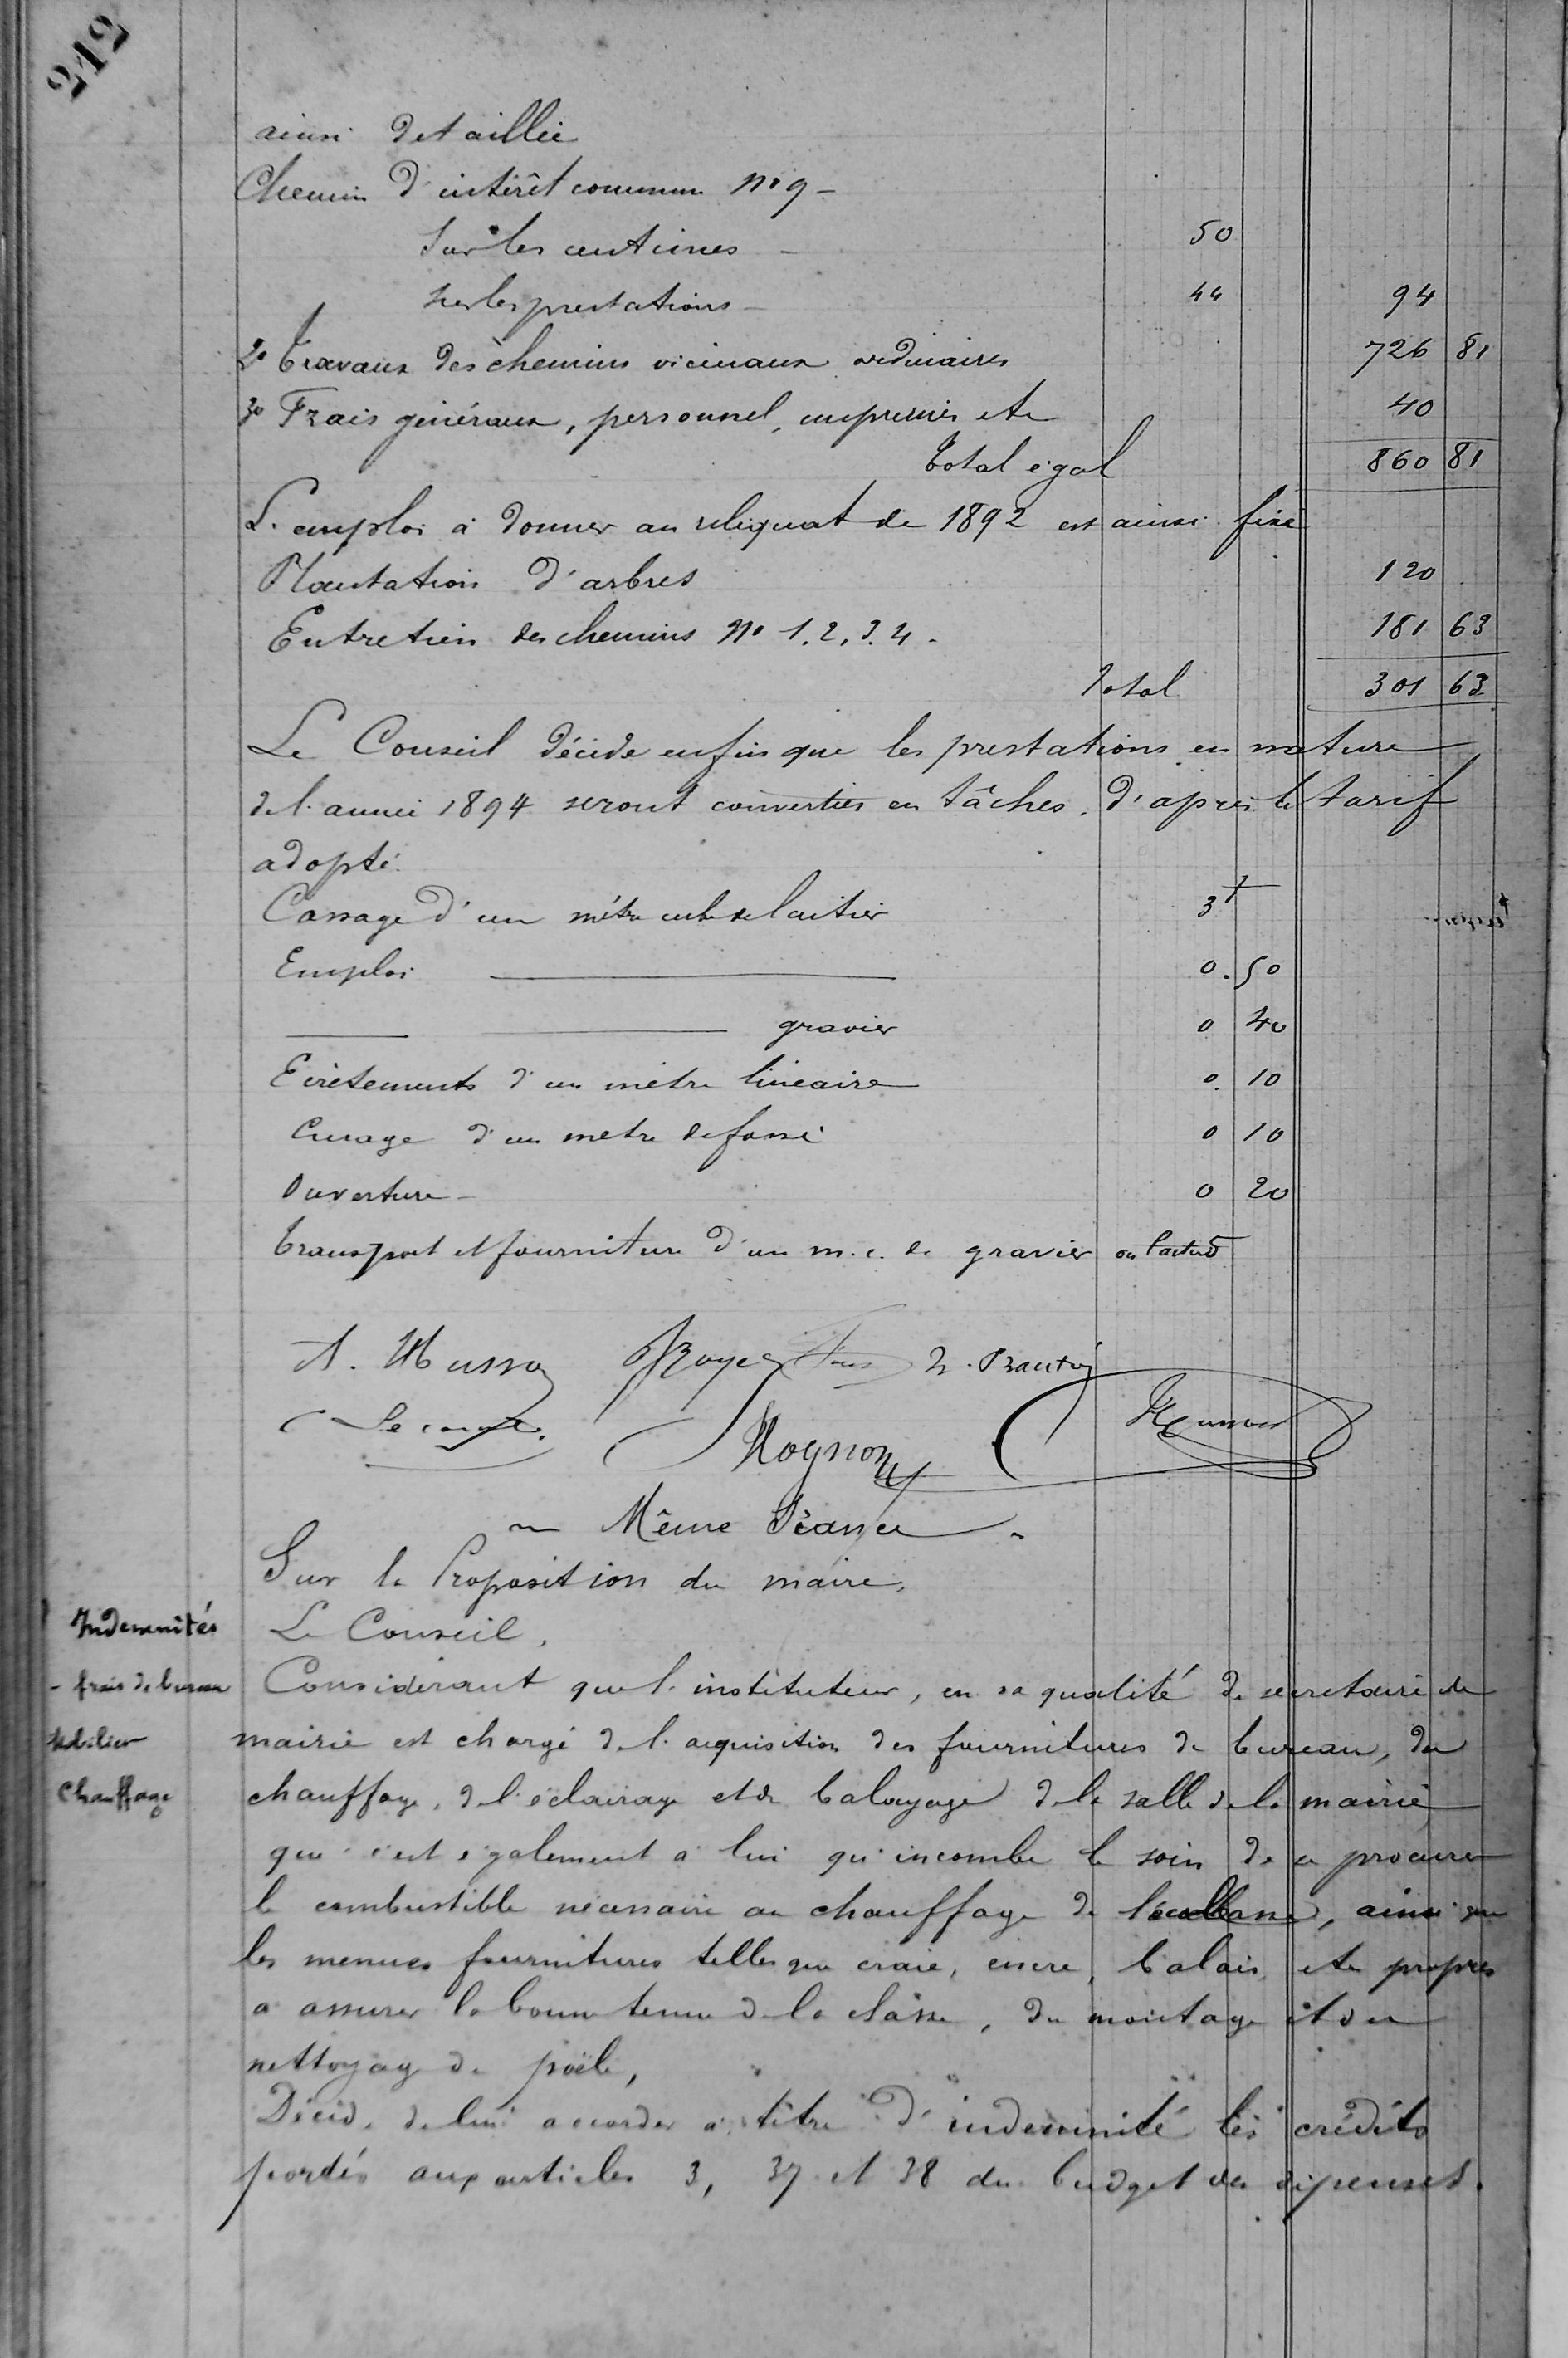 212
ainsi detaillée
Chemin d'intérêt commun No 9 -
Sur les centimes - 50
sur les prestations - 44 94
2o Travaux des chemins vicinaux ordinaires 726 81
3o Frais généraux, personnel, imprimés etc 40
Total égal 860 81
L'emploi à donner au reliquat de 1892 est ainsi fixé
Plantation d'arbres 120
Entretien des chemins No 1. 2. 3. 4 - 181 63
Total 301 63
Le Conseil décide enfin que les prestations en nature
de l'année 1894 seront converties en tâches, d'après le tarif
adopté.
Cassage d'un mètre cube de laitier 3 f
Emploi 0. 50
gravier 0 40
Ecrêtements d'un mètre linéaire 0. 10
Curage d'un mètre de fossé 0 10
Ouverture - 0 20
Transport et fourniture d'un m. c. de gravier ou
A. Musson Royer
Mognon
Même Séance
Sur la Proposition du maire,
Indemnités
Le Conseil,
- frais de bureau
Considérant que l'instituteur, en sa qualité de secrétaire de
Mobilier
mairie est chargé de l'acquisition des fournitures de bureau, du
Chauffage
chauffage, de l'éclairage et du balayage de la salle de la mairie
que c'est également à lui qu'incombe le soin de se procurer
le combustible nécessaire au chauffage de la classe, ainsi que
les menues fournitures telles que craie, encre, balais, etc propres
à assurer la bonne tenue de la classe, du montage et du
nettoyage du poêle,
Décide de lui accorder à titre d'indemnité les crédits
portés aux articles 3, 37 et 38 du budget des dépenses.